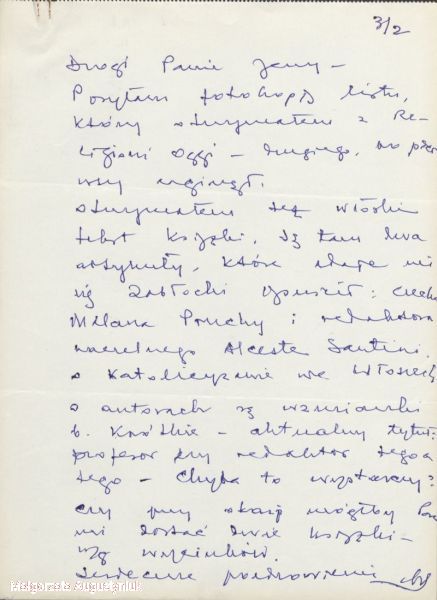 3/2
Drogi Panie Jerzy –
Posyłam fotokopię listu,
który otrzymałem z Re-
ligioni Oggi – drugiego, bo pier
wszy zaginął.
Otrzymałem też włoski
tekst książki. Są tam dwa
artykuły, które zdaje mi
się Zabłocki opuścił:
Milana Pruchy i redaktora
naczelnego Alceste Santini.
o Katolicyzmie we Włoszech
o autorach są wzmianki
b. krótkie – aktualny tytuł:
profesor czy redaktor tego a
tego – chyba to wystarczy?
czy przy okazji mógłby Pan
mi dostać dwie książki –
wg wycinków.
Serdeczne pozdrowienia